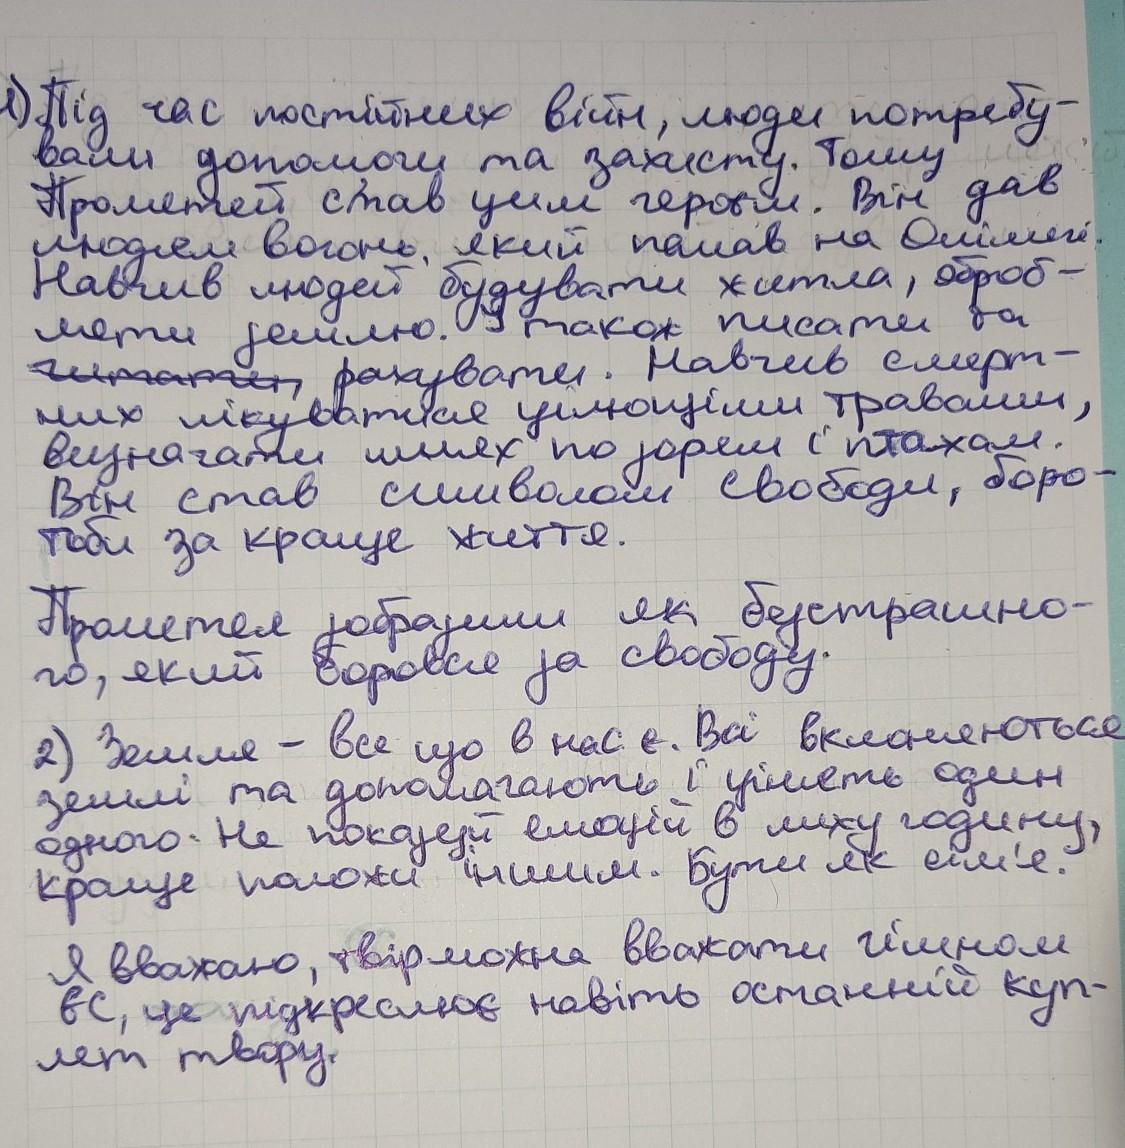 1) Під час постійних війн, люди потребу-
вали допомоги та захисту. Тому
Прометей став цим героєм. Він дав
людям вогонь, який палав на Олімпі.
Навчив людей будувати житла, оброб-
ляти землю. І також писати та
читати, рахувати. Навчив смерт-
них лікуватися цілющіми травами,
визначати шлях по зорям і птахам.
Він став символом свободи, боро-
тоби за краще життя.
Прометея зобразили як безстрашно-
го, який боровся за свободу.
2) Земля – все що в нас є. Всі вклоняються
землі та допомагають і цінять один
одного. Не показуй емоцій в лиху годину,
краще положи іншим. Бути як сім'я.
Я вважаю, твір можна вважати гімном
ЄС, це підкреслює навіть останній куп-
лет твору.